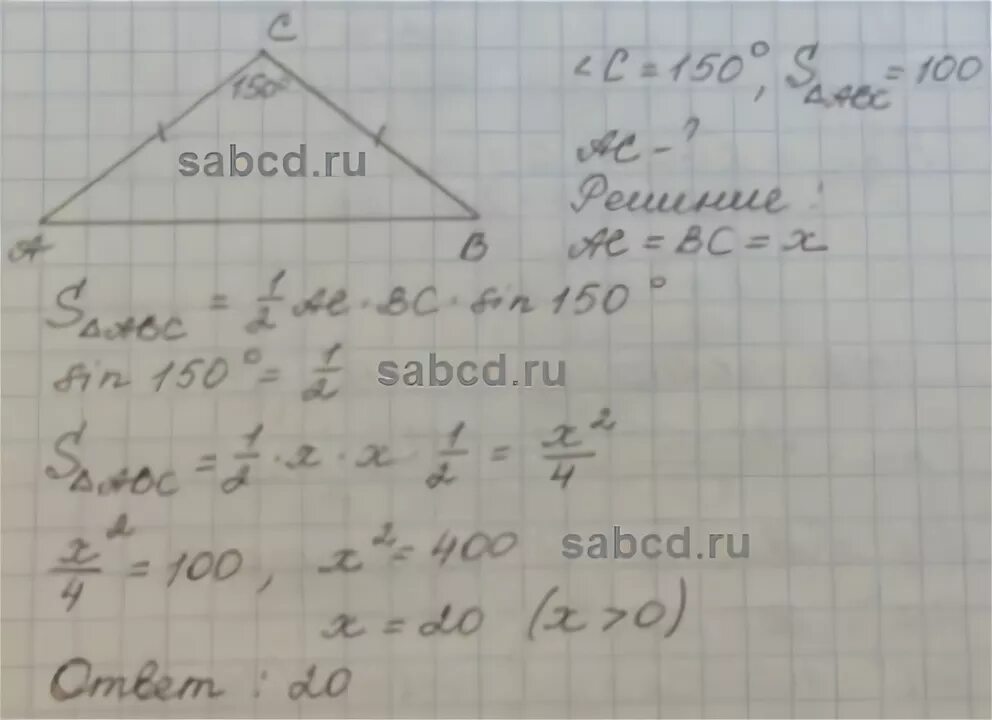 C
150°
sabcd.ru
A
B
∠C = 150°, S△ABC = 100
AC – ?
Решение :
AC = BC = x
S△ABC = 1/2 AC · BC · sin 150°
sin 150° = 1/2
sabcd.ru
S△ABC = 1/2 · x · x 1/2 = x²/4
x²/4 = 100, x² = 400
sabcd.ru
x = 20 (x > 0)
Ответ : 20